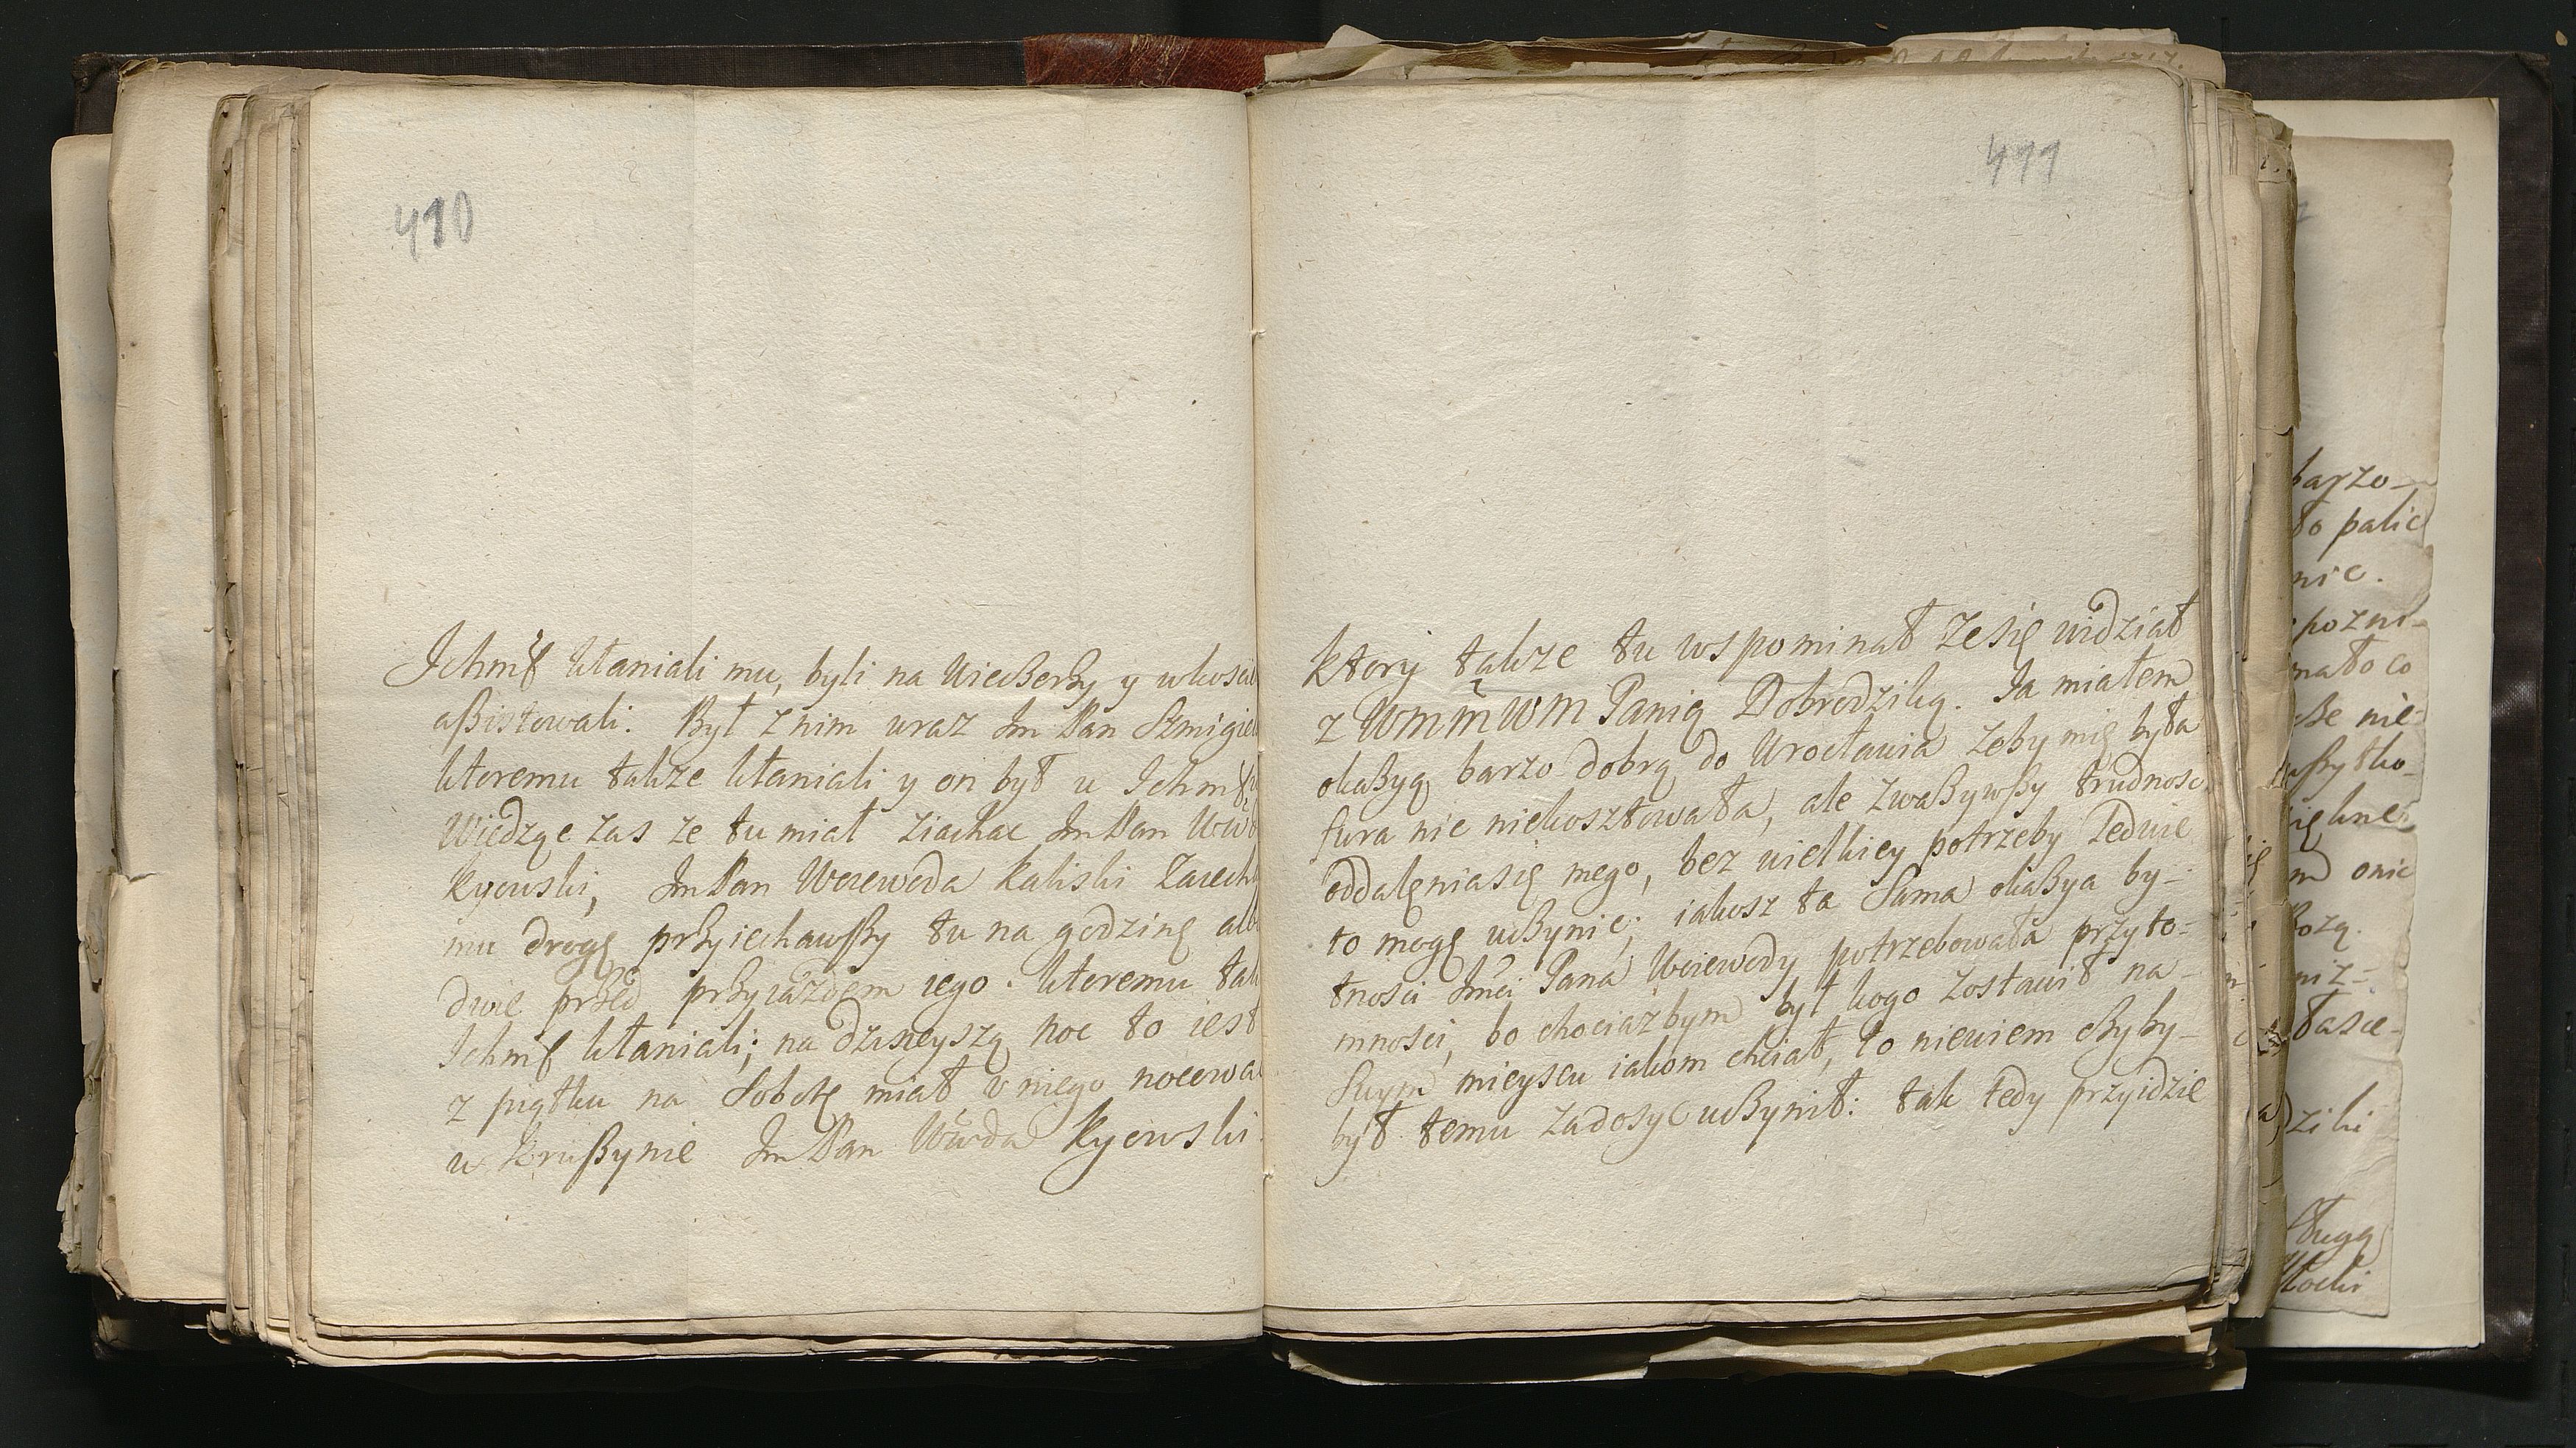 410
Ichmć kłaniali mu, byli na wieczerzy y wkosci
assistowali. Był z nim wraz Jm Pan Szmigie
ktoremu także kłaniali y on był u Ichmć
Wiedząc zas ze tu miał ziachac Jm Pan
Kyowski, Jm Pan Woiewoda kaliski Zaiech
mu drogę przyiechawszy tu na godzinę alb
dwie przed przyiazdem iego. ktoremu tak
Ichmć kłaniali; na dzisieyszą noc to iest
z piątku na Sobotę miał v niego nocowa
w Kruszynie Jm Pan Wwda Kyowski
411
ktory także tu wspominał ze się widział
z WMM WM Panią Dobrodziką. Ia miałem
okazyą barzo dobrą do Wrocławia zeby mię była
fura nic niekosztowała, ale zwazywszy trudnosc
oddalęnia się mego, bez wielkiey potrzeby Ledwie
to mogę uczynic; iakosz ta Sama okazya by-
tnosci Jmci Pana Woiewody potrzebowała przyto-
mnosci, bo chociazbym był kogo zostawił na
Swym mieyscu iakom chciał, to niewiem czyby-
był temu zadosyc uczynił: tak tedy przyidzie
barzo-
to palic
nic.
pozni-
mało co
sze nie-
wszytko-
ięknei
m onic
Bozą.
niz-
łasce-
ziki
sługą